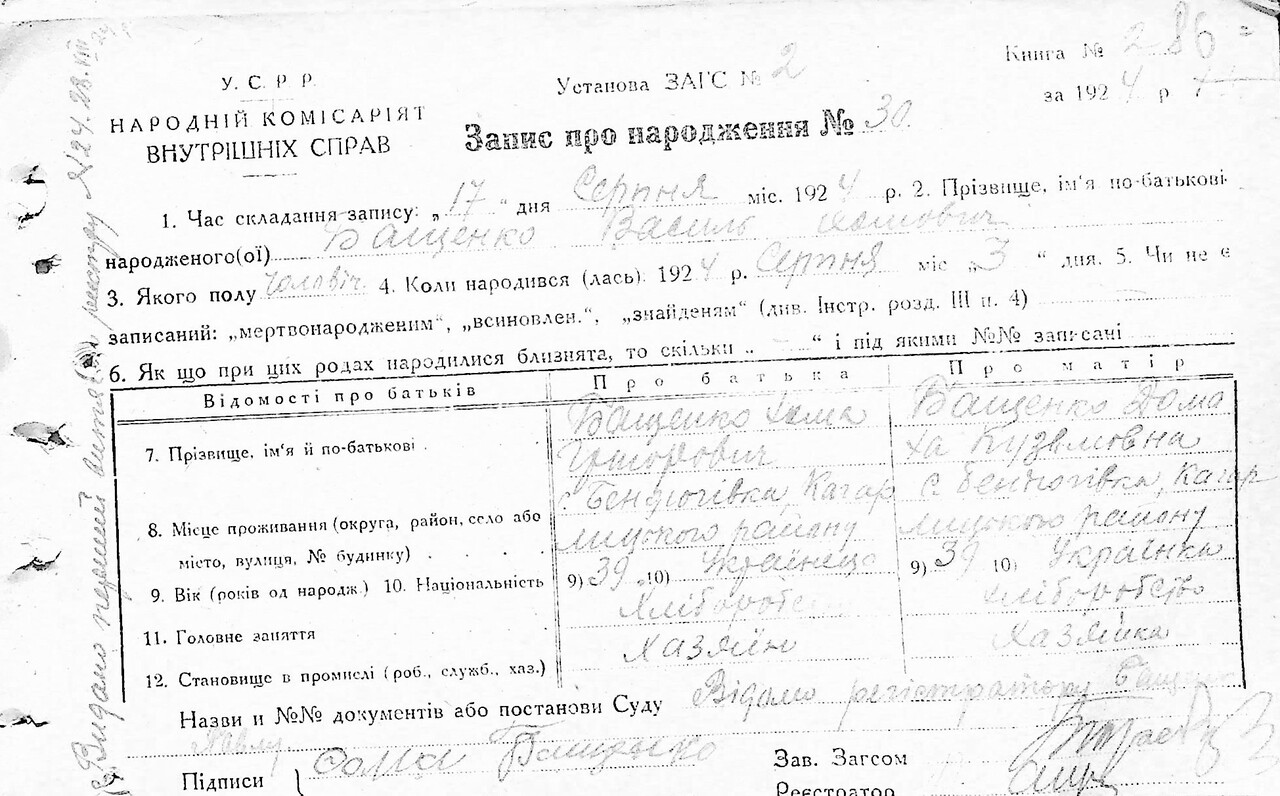 Книга № 286
У. С. Р. Р.
Установа ЗАГС № 2
за 1924 р.
НАРОДНІЙ КОМІСАРІЯТ
ВНУТРІШНІХ СПРАВ
Запис про народження № 30
1. Час складання запису: „17“ дня Серпня міс. 1924 р. 2. Прізвище, ім'я по-батькові
народженого(ої) Бащенко Василь Хомович
3. Якого полу чоловіч. 4. Коли народився (лась) 1924 р. Серпня міс „3“ дня. 5. Чи не є
записаний: „мертвонародженим“, „всиновлен.“, „знайденям“ (див. Інстр. розд. III п. 4)
6. Як що при цих родах народилися близнята, то скільки „ “ і під якими №№ записані
Відомості про батьків Про батька Про матір
7. Прізвище, ім'я й по-батькові Бащенко Хома Григорович Бащенко Домаха Кузьмовна
8. Місце проживання (округа, район, село або місто, вулиця, № будинку) с. Бендюгівка, Кагарлицького району с. Бендюгівка, Кагарлицького району
9. Вік (років од народж.) 10. Національність 9) 39 10) Українець 9) 39 10) Українка
11. Головне заняття Хліборобство Хліборобство
12. Становище в промислі (роб., служб., хаз.) Хазяїн Хазяйка
Назви и №№ документів або постанови Суду Відомо регістратору Бащенко
Підписи Бащенко
Зав. Загсом
Реєстратор
Видано перший витяг реєстру N 24. 28.VIII